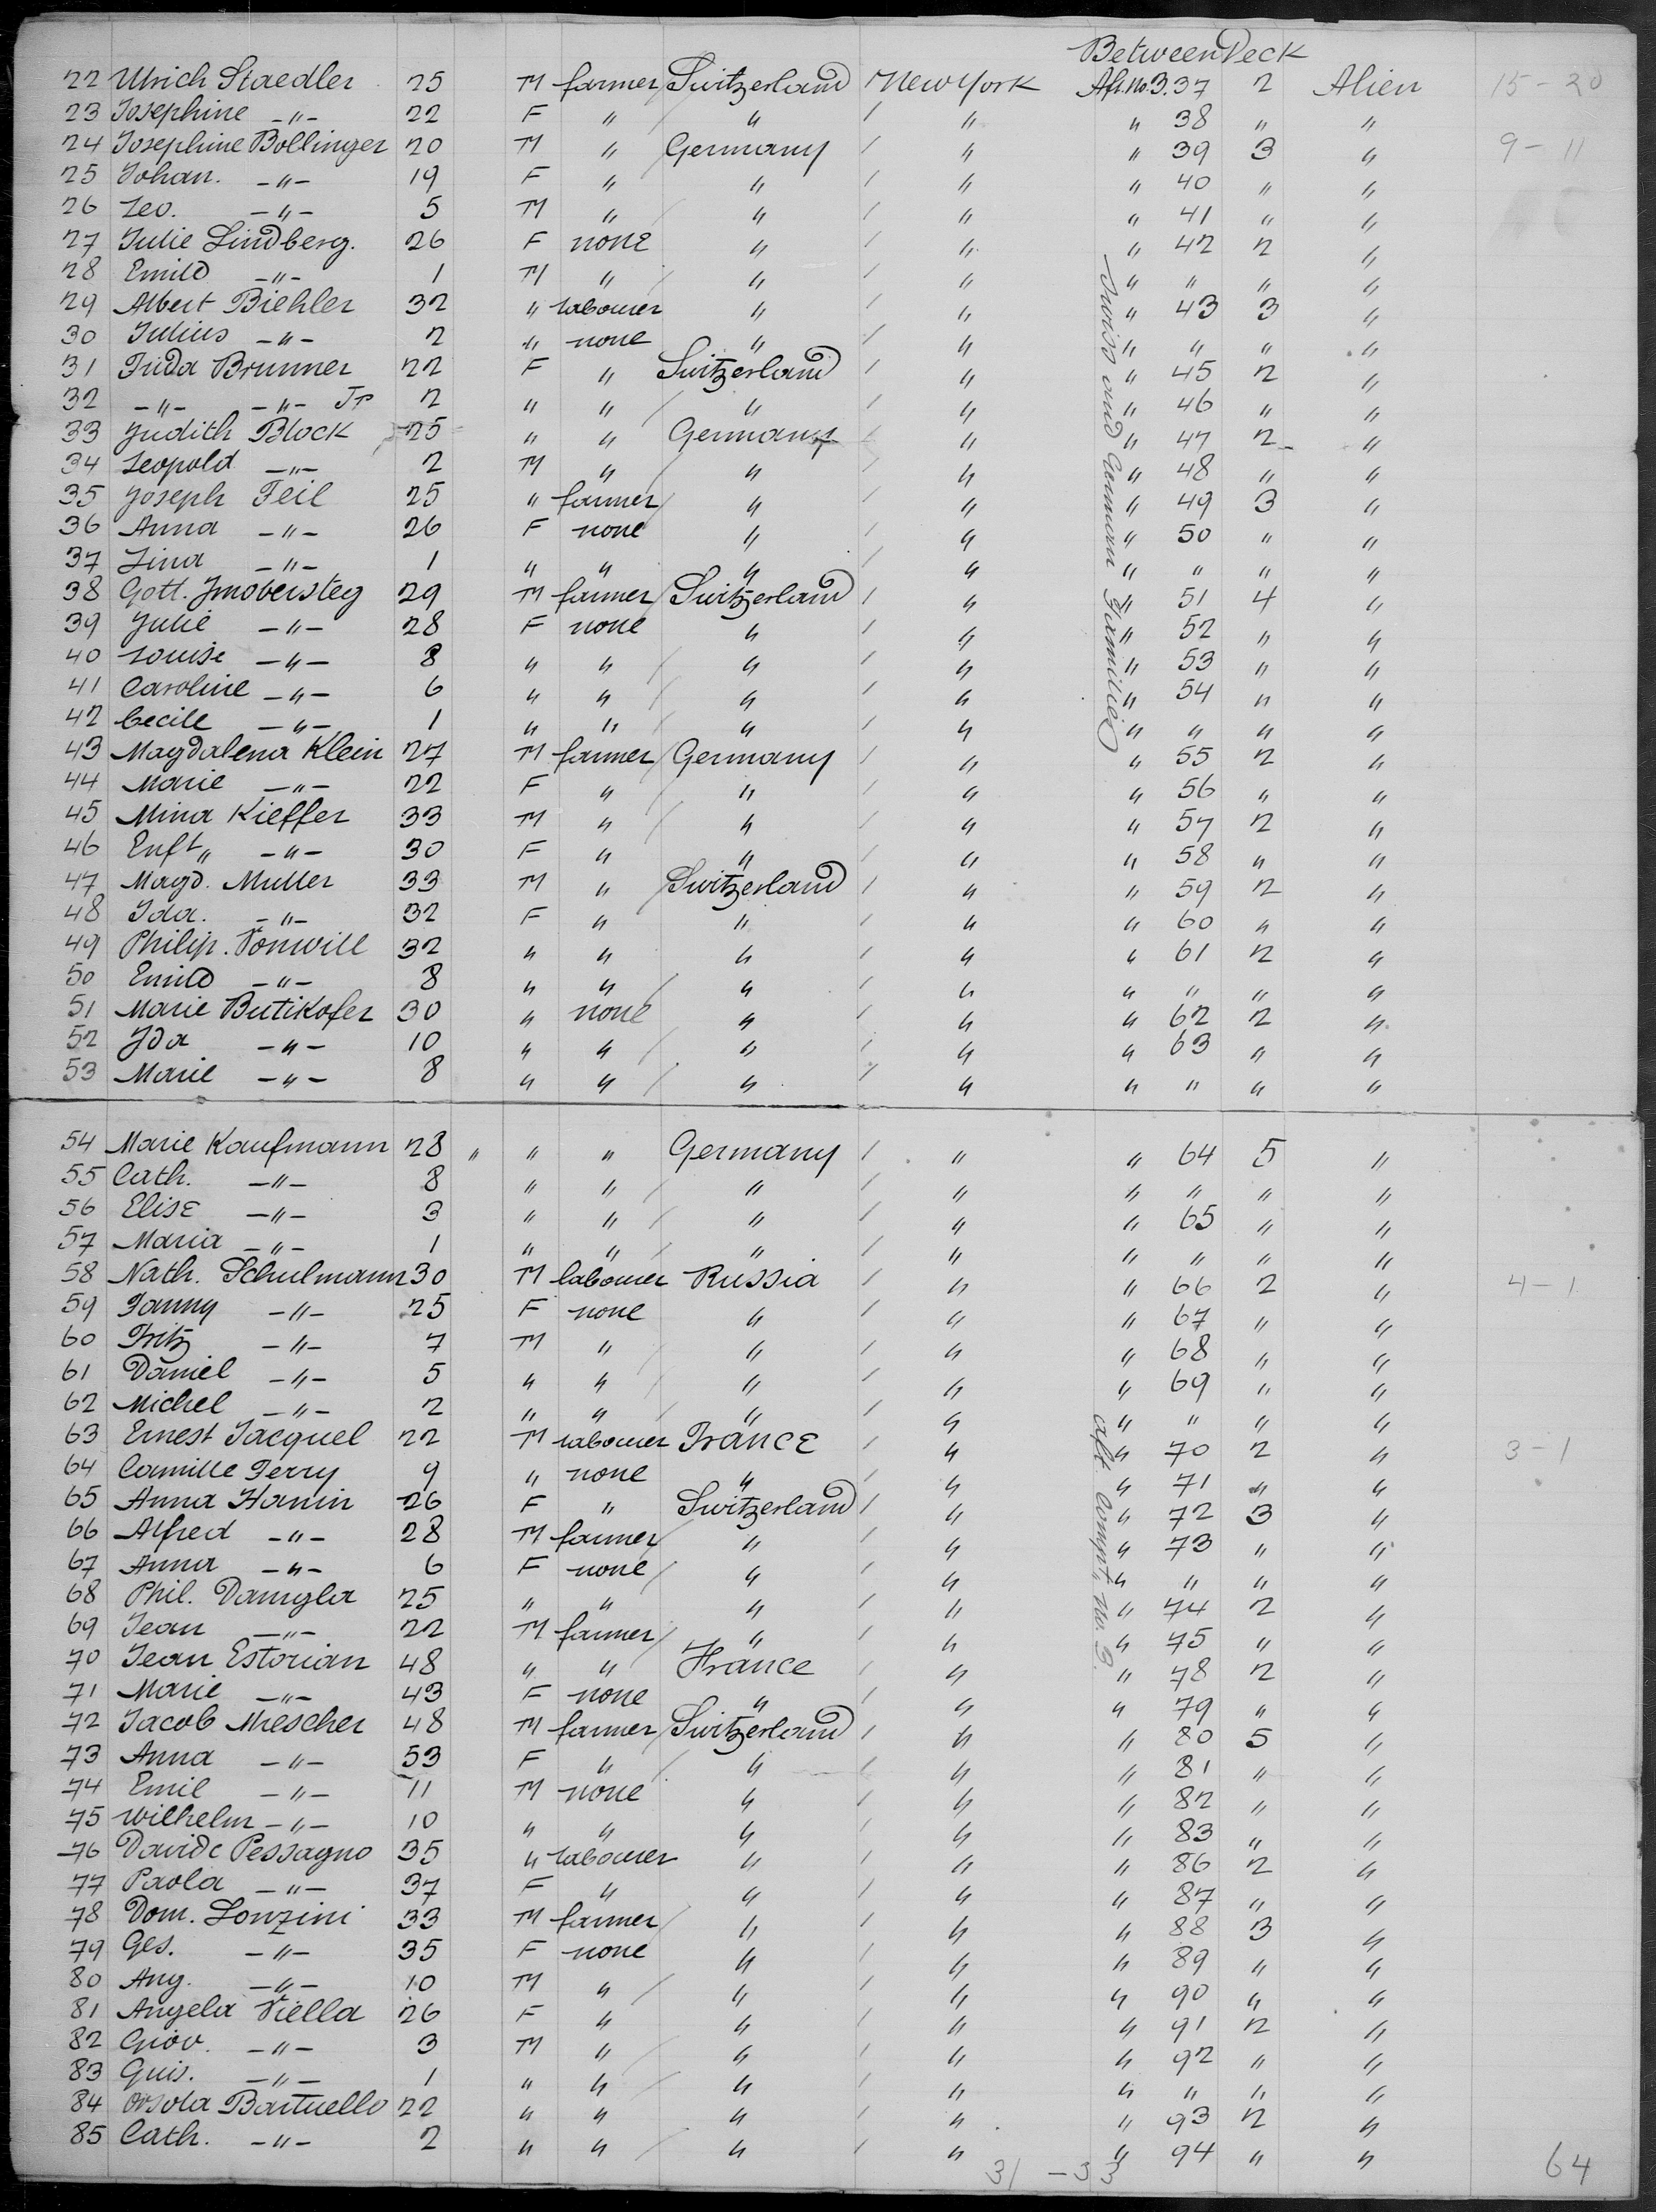 Between Deck
22 Ulrich Staedler 25 M farmer Switzerland New York Aft. No 3. 37 2 Alien 15 - 20
23 Josephine -"- 22 F " " " " 38 " "
24 Josephine Bollinger 20 M " Germany " " 39 3 " 9 - 11
25 Johan. -"- 19 F " " " " 40 " "
26 Leo. -"- 5 M " " " " 41 " "
27 Julie Lindberg. 26 F none " " " 42 2 "
28 Emild -"- 1 M " " " " " " "
29 Albert Biehler 32 " labourer " " " 43 3 "
30 Julius -"- 2 " none " " " " " "
31 Frida Brunner 22 F " Switzerland " " 45 2 "
32 -"- -"- Jr 2 " " " " " 46 " "
33 Judith Block 25 " " Germany " " 47 2 "
34 Leopold -"- 2 M " " " " 48 " "
35 Joseph Feil 25 " farmer " " " 49 3 "
36 Anna -"- 26 F none " " " 50 " "
37 Lina -"- 1 " " " " " " " "
38 Gott. Jmobersteg 29 M farmer Switzerland " " 51 4 "
39 Julie -"- 28 F none " " " 52 " "
40 Louise -"- 8 " " " " " 53 " "
41 Caroline -"- 6 " " " " " 54 " "
42 Cecile -"- 1 " " " " " " " "
43 Magdalena Klein 27 M farmer Germany " " 55 2 "
44 Marie -"- 22 F " " " " 56 " "
45 Mina Kieffer 33 M " " " " 57 2 "
46 -"- 30 F " " " " 58 " "
47 Magd. Muller 33 M " Switzerland " " 59 2 "
48 Ida. -"- 32 F " " " " 60 " "
49 Philip. Vonwill 32 " " " " " 61 2 "
50 Emild -"- 8 " " " " " " " "
51 Marie Butikofer 30 " none " " " 62 2 "
52 Jda -"- 10 " " " " " 63 " "
53 Marie -"- 8 " " " " " " " "
Swiss and German Families
54 Marie Kaufmann 28 " " " Germany " " 64 5 "
55 Cath. -"- 8 " " " " " " " "
56 Elise -"- 3 " " " " " 65 " "
57 Maria -"- 1 " " " " " " " "
58 Nath. Schulmann 30 M labourer Russia " " 66 2 " 4 - 1
59 Fanny -"- 25 F none " " " 67 " "
60 Fritz -"- 7 M " " " " 68 " "
61 Daniel -"- 5 " " " " " 69 " "
62 Michel -"- 2 " " " " " " " "
63 Ernest Jacquel 22 M labourer France " " 70 2 " 3 - 1
64 Camille Ferry 9 " none " " " 71 " "
65 Anna Hanin 26 F " Switzerland " " 72 3 "
66 Alfred -"- 28 M farmer " " " 73 " "
67 Anna -"- 6 F none " " " " " "
68 Phil. Damgla 25 " " " " " 74 2 "
69 Jean -"- 22 M farmer " " " 75 " "
70 Jean Estorian 48 " " France " " 78 2 "
71 Marie -"- 43 F none " " " 79 " "
72 Jacob Mescher 48 M farmer Switzerland " " 80 5 "
73 Anna -"- 53 F " " " " 81 " "
74 Emil -"- 11 M none " " " 82 " "
75 Wilhelm -"- 10 " " " " " 83 " "
76 Davide Pessagno 35 " labourer " " " 86 2 "
77 Paola -"- 37 F " " " " 87 " "
78 Dom. Lonzini 33 M farmer " " " 88 3 "
79 Ges. -"- 35 F none " " " 89 " "
80 Ang. -"- 10 M " " " " 90 " "
81 Angela Viella 26 F " " " " 91 2 "
82 Giov. -"- 3 M " " " " 92 " "
83 Guis. -"- 1 " " " " " " " "
84 Orsola Bartuello 22 " " " " " 93 2 "
85 Cath. -"- 2 " " " " " 94 " "
Aft. Compt. No. 3.
31 - 33
64